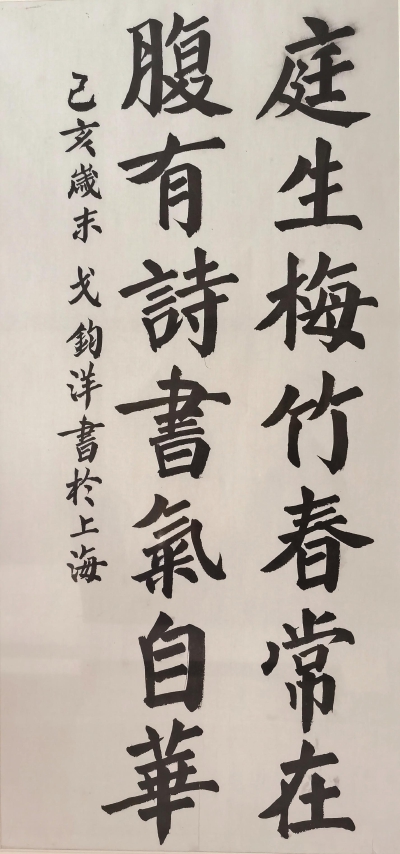 庭生梅竹春常在
腹有詩書氣自華
己亥歲末戈鈞洋書於上海